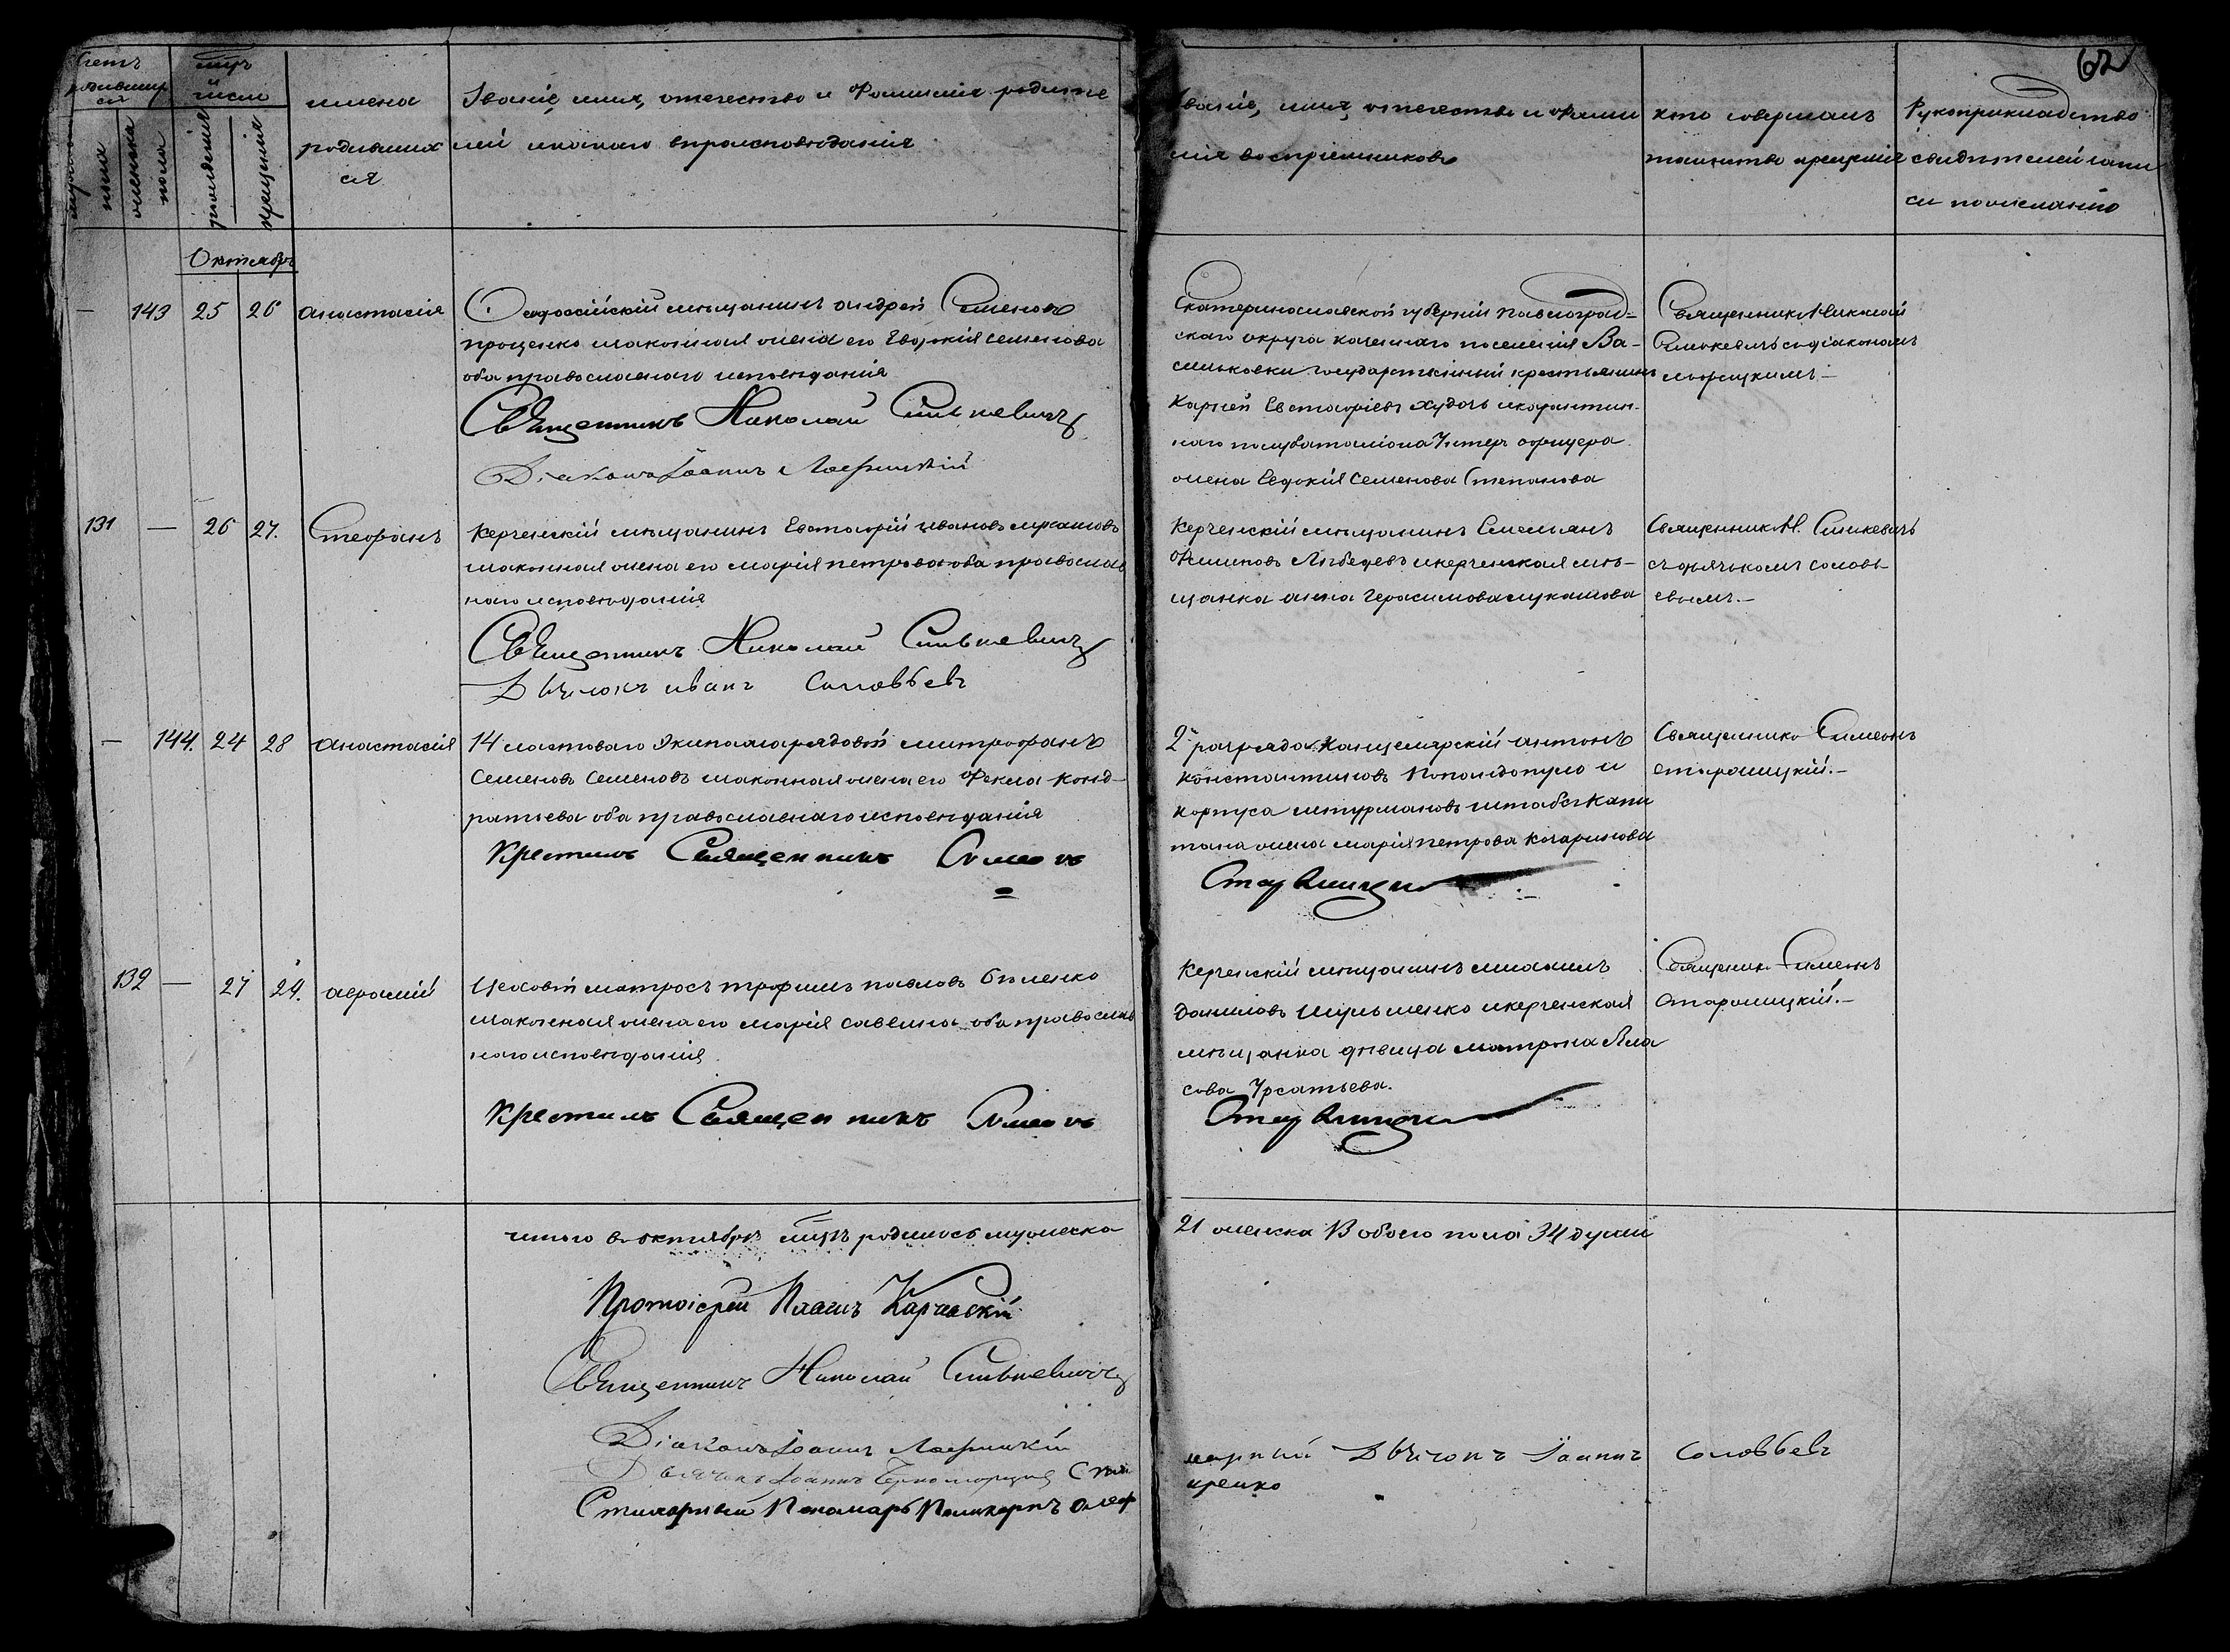 62
Счетъ родившихся
мужеска пола
женска пола
мѣсяцъ и число
рожденія
крещенія
имена
родивших
ся
Званіе, имя, отечество и Фамилія родите
лей и какого вѣроисповѣданія
Званіе, имя, отечество и Фами
лія воспріемниковъ
кто совершалъ
таинство крещенія
Рукоприкладство
свидѣтелей запи
си по желанію
Октябрь
— 143 25 26 Анастасія
Ѳеодосійскій мѣщанинъ Андрей Семеновъ
Проценко и законная жена его Евдокія Семенова
оба православнаго исповѣданія
Священникъ Николай Синькевичъ
Діаконъ Іоаннъ
Екатеринославской губерніи Павлоград=
скаго округа казеннаго поселенія Ва-
сильковки государственный крестьянинъ
Карпей Евстафіевъ Худочъ и карантин-
наго полубаталіона Унтеръ офицера
жена Евдокія Семенова Степанова
Священникъ Николай
Синькевичъ съ діакономъ
131 — 26 27. Стефанъ
Керченскій мѣщанинъ Евстафій Ивановъ
законная жена его Марія Петрова оба православ
наго исповѣданія
Священникъ Николай Синькевичъ
Дьячокъ Иванъ Соловьевъ
Керченскій мѣщанинъ Емельянъ
Филиповъ Лебедевъ и керченская мѣ-
щанка Анна Герасимова Лукашова
Священникъ Н. Синкевичъ
съ дьячкомъ Соловь
евымъ.—
— 144. 24 28 Анастасія
14 ластоваго Экипажа рядовой Митрофанъ
Семеновъ Семеновъ и законная жена его Фекла Конд-
ратьева оба православнаго исповѣданія
Крестилъ Священникъ Симеонъ
2го разряда Канцелярскій Антонъ
Константиновъ Попандопуло и
корпуса штурмановъ штабсъ Капи
тана жена Марія Петрова
Старицкій
Священникъ Симеонъ
132 — 27 29.
Цеховой матросъ Трофимъ Павловъ Биленко
и законная жена его Марія Савелина оба православ
наго исповѣданія
Крестилъ Священникъ Симеонъ
Керченскій мѣщанинъ Михаилъ
Даниловъ и керченская
мѣщанка дѣвица Матрона Вла
сова Урсатьева.
Священникъ Симеонъ
итого въ октябрѣ мцѣ родилось мужеска
21 женска 13 обоего пола 34 души
Протоіерей Іоаннъ
Священникъ Николай Синькевичъ
Діаконъ Іоаннъ
Дьячокъ Іоаннъ Черноморцевъ
Стихарный Пономарь Поликарпъ
Дьячокъ Іоаннъ Соловьевъ